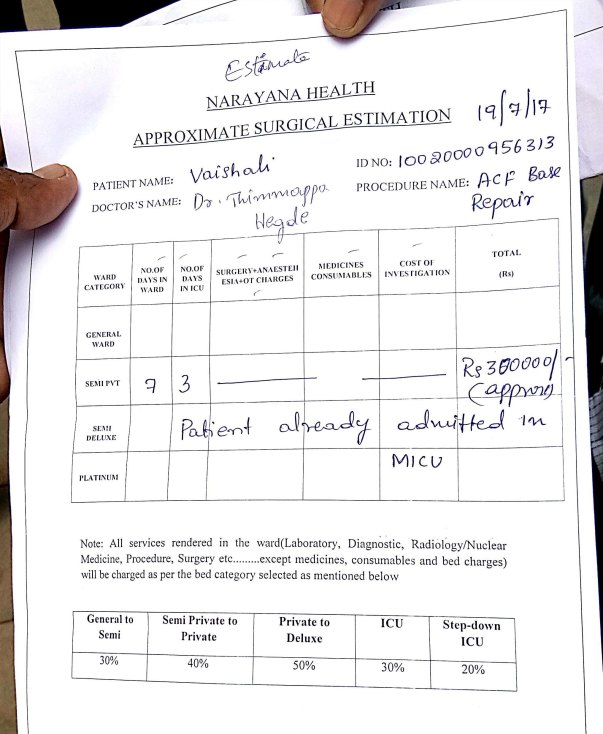 Estimate
NARAYANA HEALTH
APPROXIMATE SURGICAL ESTIMATION 19/7/17
PATIENT NAME: Vaishali ID NO: 10020000956313
DOCTOR'S NAME: Dr. Thimmappa Hegde PROCEDURE NAME: ACF Base Repair
WARD CATEGORY NO.OF DAYS IN WARD NO.OF DAYS IN ICU SURGERY+ANAESTEH ESIA+OT CHARGES MEDICINES CONSUMABLES COST OF INVESTIGATION TOTAL (Rs)
GENERAL WARD
SEMI PVT 7 3 Rs 300000/- (approx)
SEMI DELUXE Patient already admitted in
PLATINUM MICU
Note: All services rendered in the ward(Laboratory, Diagnostic, Radiology/Nuclear
Medicine, Procedure, Surgery etc.........except medicines, consumables and bed charges)
will be charged as per the bed category selected as mentioned below
General to Semi Semi Private to Private Private to Deluxe ICU Step-down ICU
30% 40% 50% 30% 20%